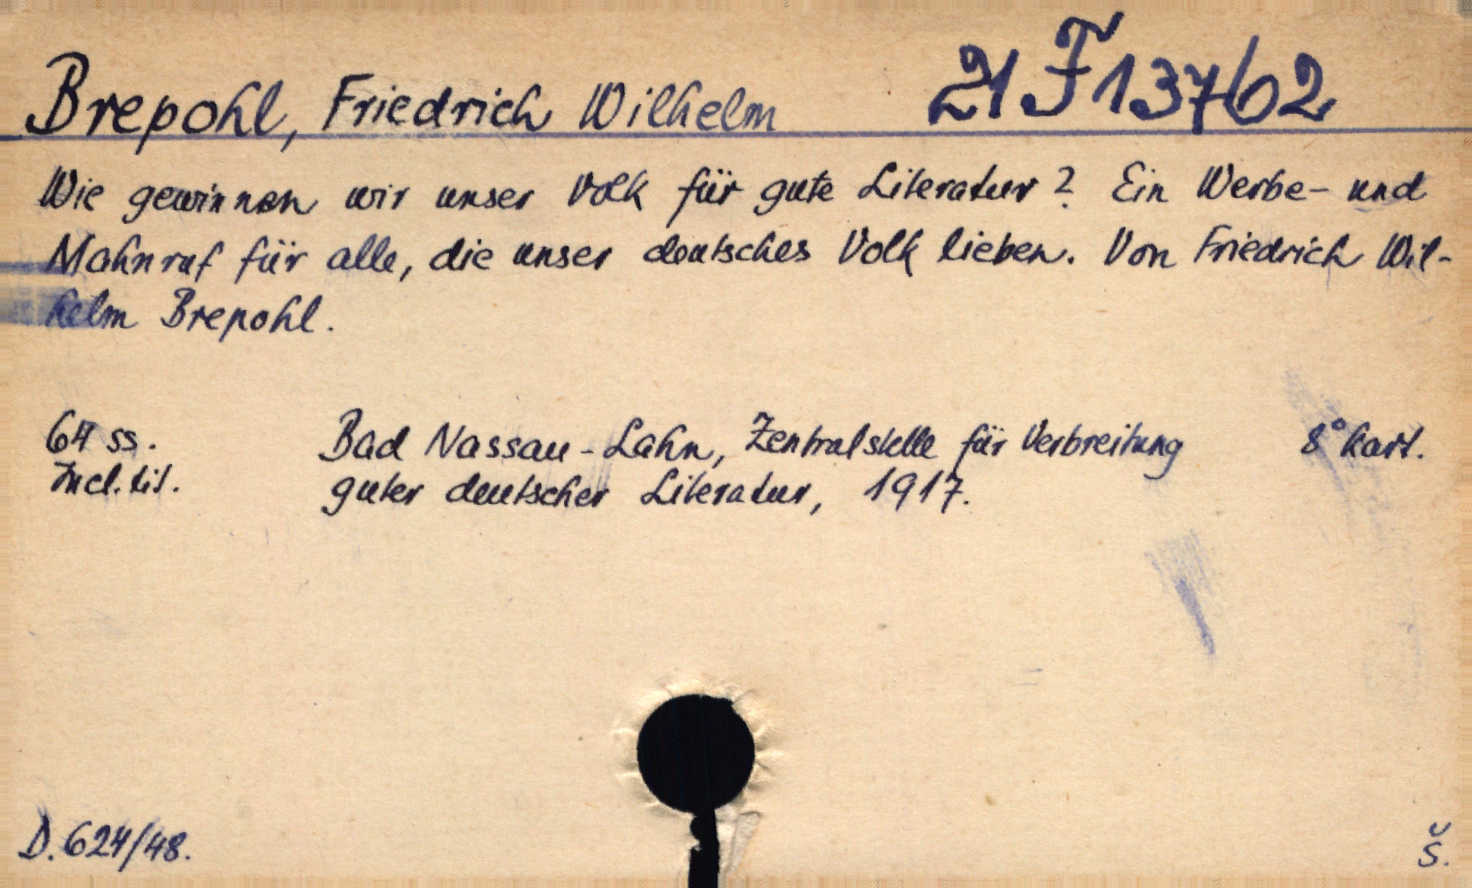 Brepohl, Friedrich Wilhelm 21 F 13762
Wie gewinnen wir unser Volk für gute Literatur? Ein Werbe- und
Mahnruf für alle, die unser deutsches Volk lieben. Von Friedrich Wil-
helm Brepohl.
64 ss. Bad Nassau-Lahn, Zentralstelle für Verbreitung 8° kart.
Incl. tit. guter deutscher Literatur, 1917.
D. 624/48. Š.